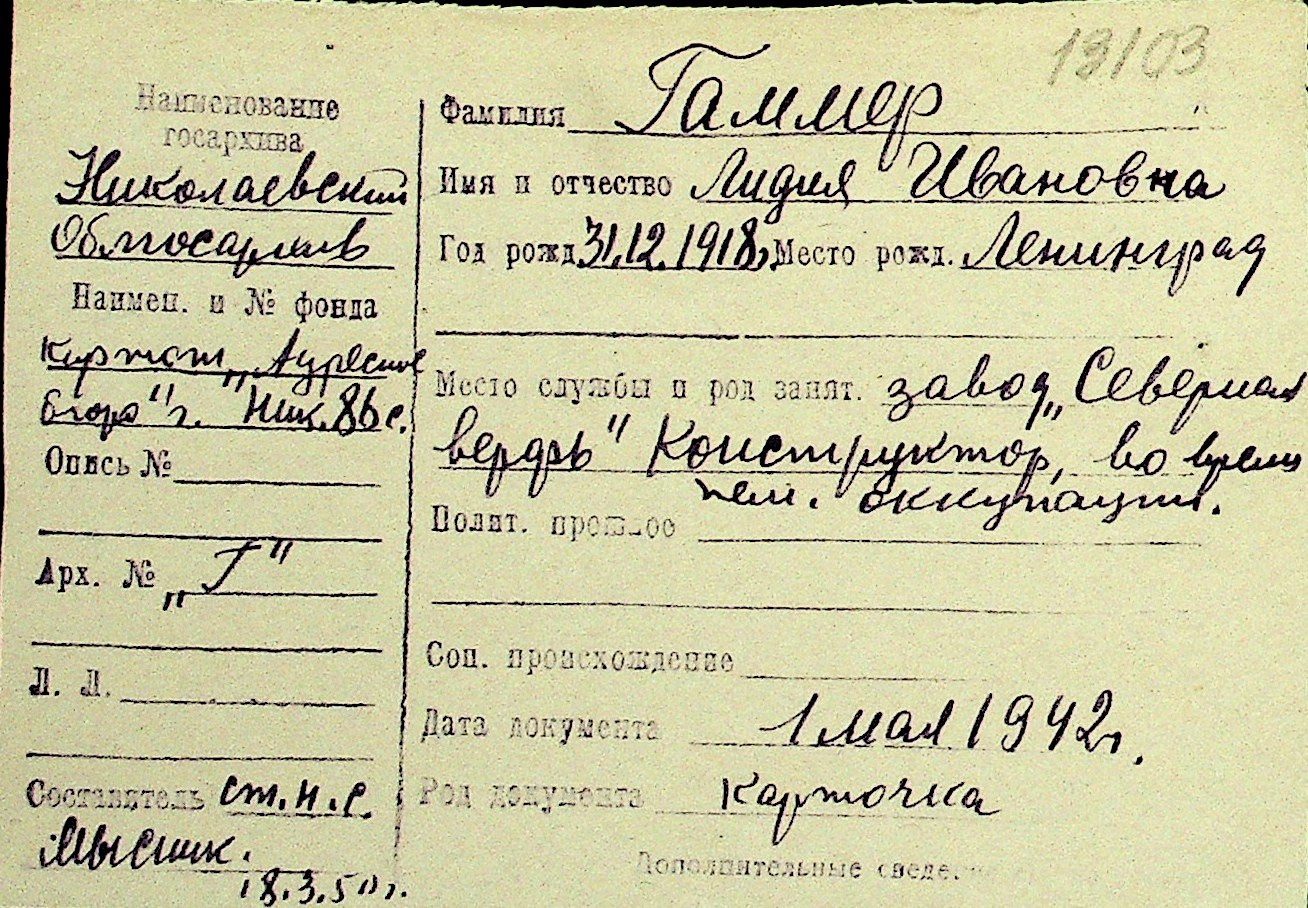 13103
Наименование
госархива
Николаевский
Облгосархив
Наимен. и № фонда
Картот. „Адресное
бюро" г. Ник. 86 с.
Опись №
Арх. № „Г"
Л. Л.
Составитель ст. н. с.
Мысник.
18.3.50 г.
Фамилия Гаммер
Имя и отчество Лидия Ивановна
Год рожд. 31.12.1918г. Место рожд. Ленинград
Место службы и род занят. завод „Северная
верфь" Конструктор, во время
нем. оккупации.
Полит. прошлое
Соц. происхождение
Дата документа 1 мая 1942г.
Род документа карточка
Дополнительные сведе.